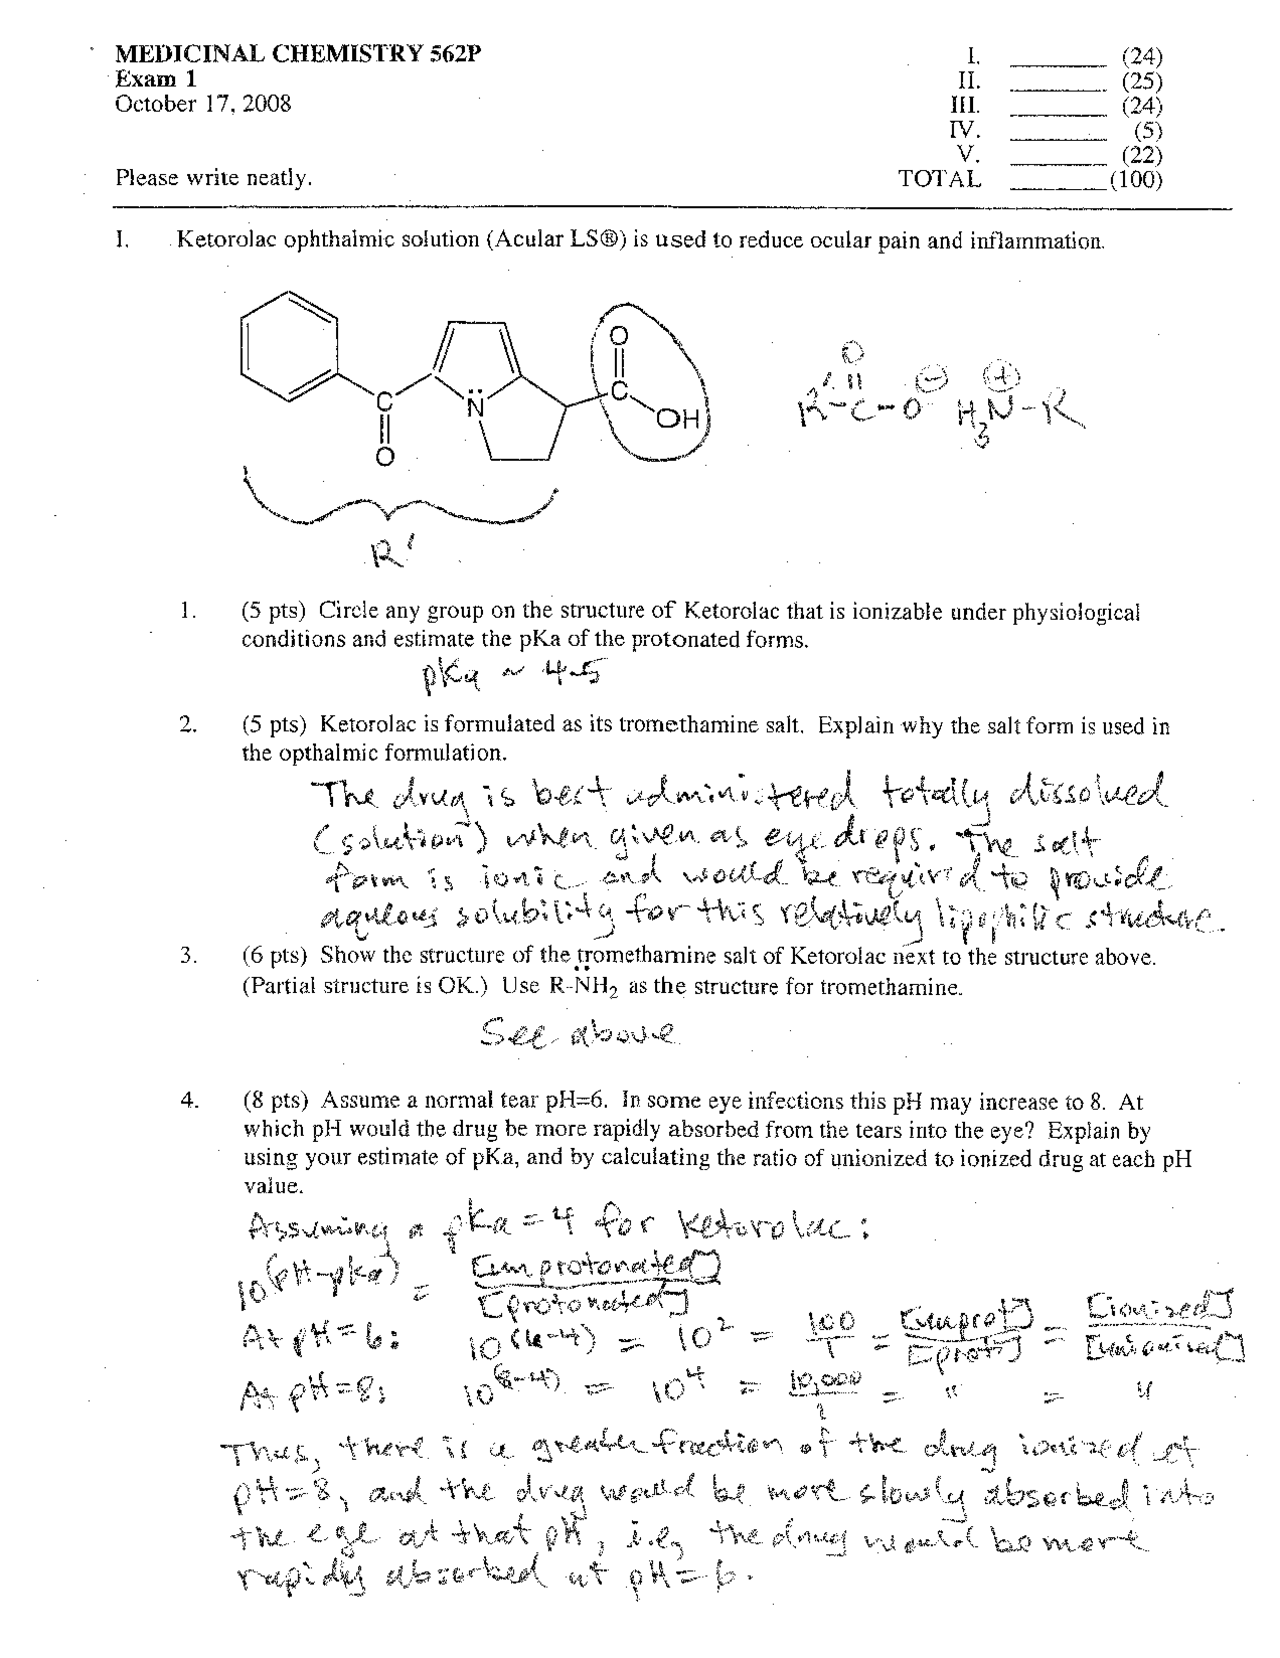 MEDICINAL CHEMISTRY 562P
Exam 1
October 17, 2008
Please write neatly.
I. ______ (24)
II. ______ (25)
III. ______ (24)
IV. ______ (5)
V. ______ (22)
TOTAL ______ (100)
I. Ketorolac ophthalmic solution (Acular LS®) is used to reduce ocular pain and inflammation.
O
C
OH
N
C
O
R'
O
R'-C-O⊖ H3N⊕-R
1. (5 pts) Circle any group on the structure of Ketorolac that is ionizable under physiological
conditions and estimate the pKa of the protonated forms.
pKa ~ 4-5
2. (5 pts) Ketorolac is formulated as its tromethamine salt. Explain why the salt form is used in
the opthalmic formulation.
The drug is best administered totally dissolved
(solution) when given as eye drops. The salt
form is ionic and would be required to provide
aqueous solubility for this relatively lipophilic structure.
3. (6 pts) Show the structure of the tromethamine salt of Ketorolac next to the structure above.
(Partial structure is OK.) Use R-N̈H2 as the structure for tromethamine.
See above
4. (8 pts) Assume a normal tear pH=6. In some eye infections this pH may increase to 8. At
which pH would the drug be more rapidly absorbed from the tears into the eye? Explain by
using your estimate of pKa, and by calculating the ratio of unionized to ionized drug at each pH
value.
Assuming a pKa = 4 for Ketorolac:
10^(pH-pKa) = [unprotonated] / [protonated]
At pH=6: 10^(6-4) = 10^2 = 100/1 = [unprot] / [prot] = [ionized] / [unionized]
At pH=8: 10^(8-4) = 10^4 = 10,000/1 = " = "
Thus, there is a greater fraction of the drug ionized at
pH=8, and the drug would be more slowly absorbed into
the eye at that pH, i.e, the drug would be more
rapidly absorbed at pH=6.